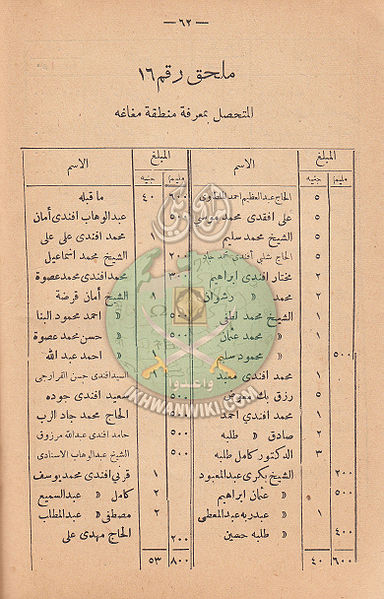 — ٦٢ —
ملحق رقم ١٦
المتحصل بمعرفة منطقة مغاغه
المبلغ الاسم
مليم جنيه
٥ الحاج عبد العظيم احمد
٥ على افندى محمد موسى
٥ الشيخ محمد سليم
٥ الحاج شلبى افندى محمد
٢ مختار افندى ابراهيم
٢ محمد » رشوان
١ الشيخ محمد
١ » محمد عثمان
٥٠٠ » محمود سليم
١ محمد افندى
٥ رزق بك
٢ محمد افندى احمد
٢ صادق » طلبه
٣ الدكتور كامل طلبه
٢٠٠ الشيخ بكرى عبد المعبود
٥٠٠ » عثمان ابراهيم
١ » عبد ربه عبد المعطى
٤٠٠ » طلبه حسين
٦٠٠ ٤٠
المبلغ الاسم
مليم جنيه
٦٠٠ ٤٠ ما قبله
٥٠٠ عبد الوهاب افندى أمان
١ محمد افندى على على
٢٠٠ الشيخ محمد اسماعيل
٣٠٠ محمد افندى محمد عصوة
١ الشيخ أمان قرضة
٥٠٠ » احمد محمود البنا
٥٠٠ » حسن محمد عصوة
١ » احمد عبد الله
السيد افندى حسن القرارجى
٥٠٠ سعيد افندى جوده
الحاج محمد جاد الرب
٥٠٠ حامد افندى عبد الله مرزوق
٥٠٠ الشيخ عبد الوهاب
١ قرنى افندى محمد يوسف
٢ كامل » عبد السميع
٢ مصطفى » عبد المطلب
٢٠٠ الحاج مهدى على
٨٠٠ ٥٣
واعدوا
IKHWANWIKI.COM